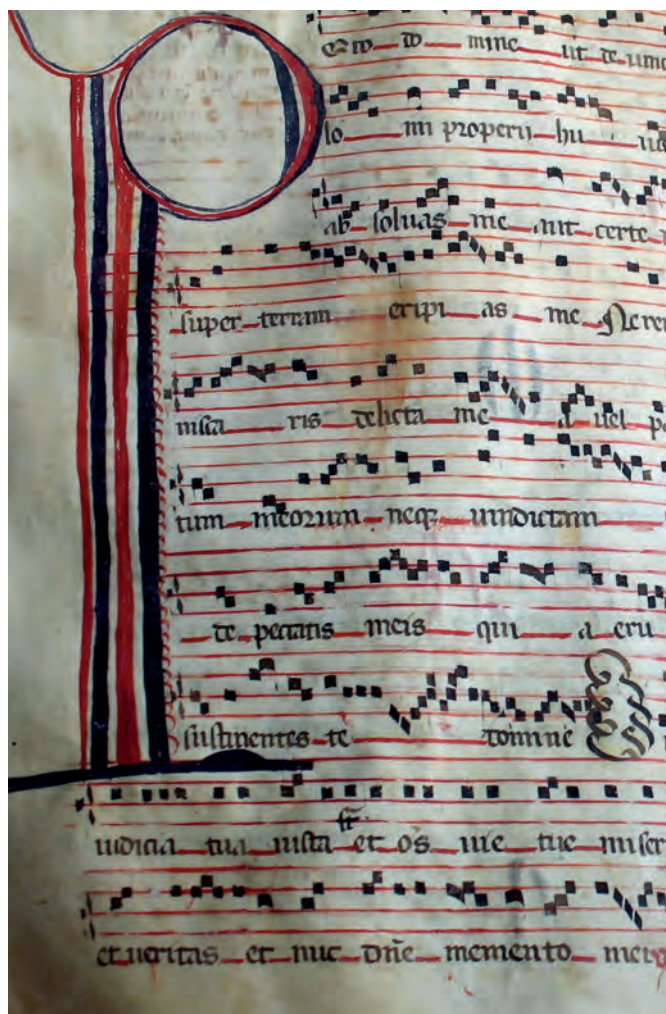 Peto domine ut de uinc
lo im properii hu ius
ab soluas me aut certe
super terram eripi as me Ne remi
nisca ris delicta me a uel pa
tum meorum neqz uindictam
de peccatis meis qui a eru
sustinentes te domine
iudicia tua iusta st et os uie tue miser
et ueritas et nuc dñe memento mei